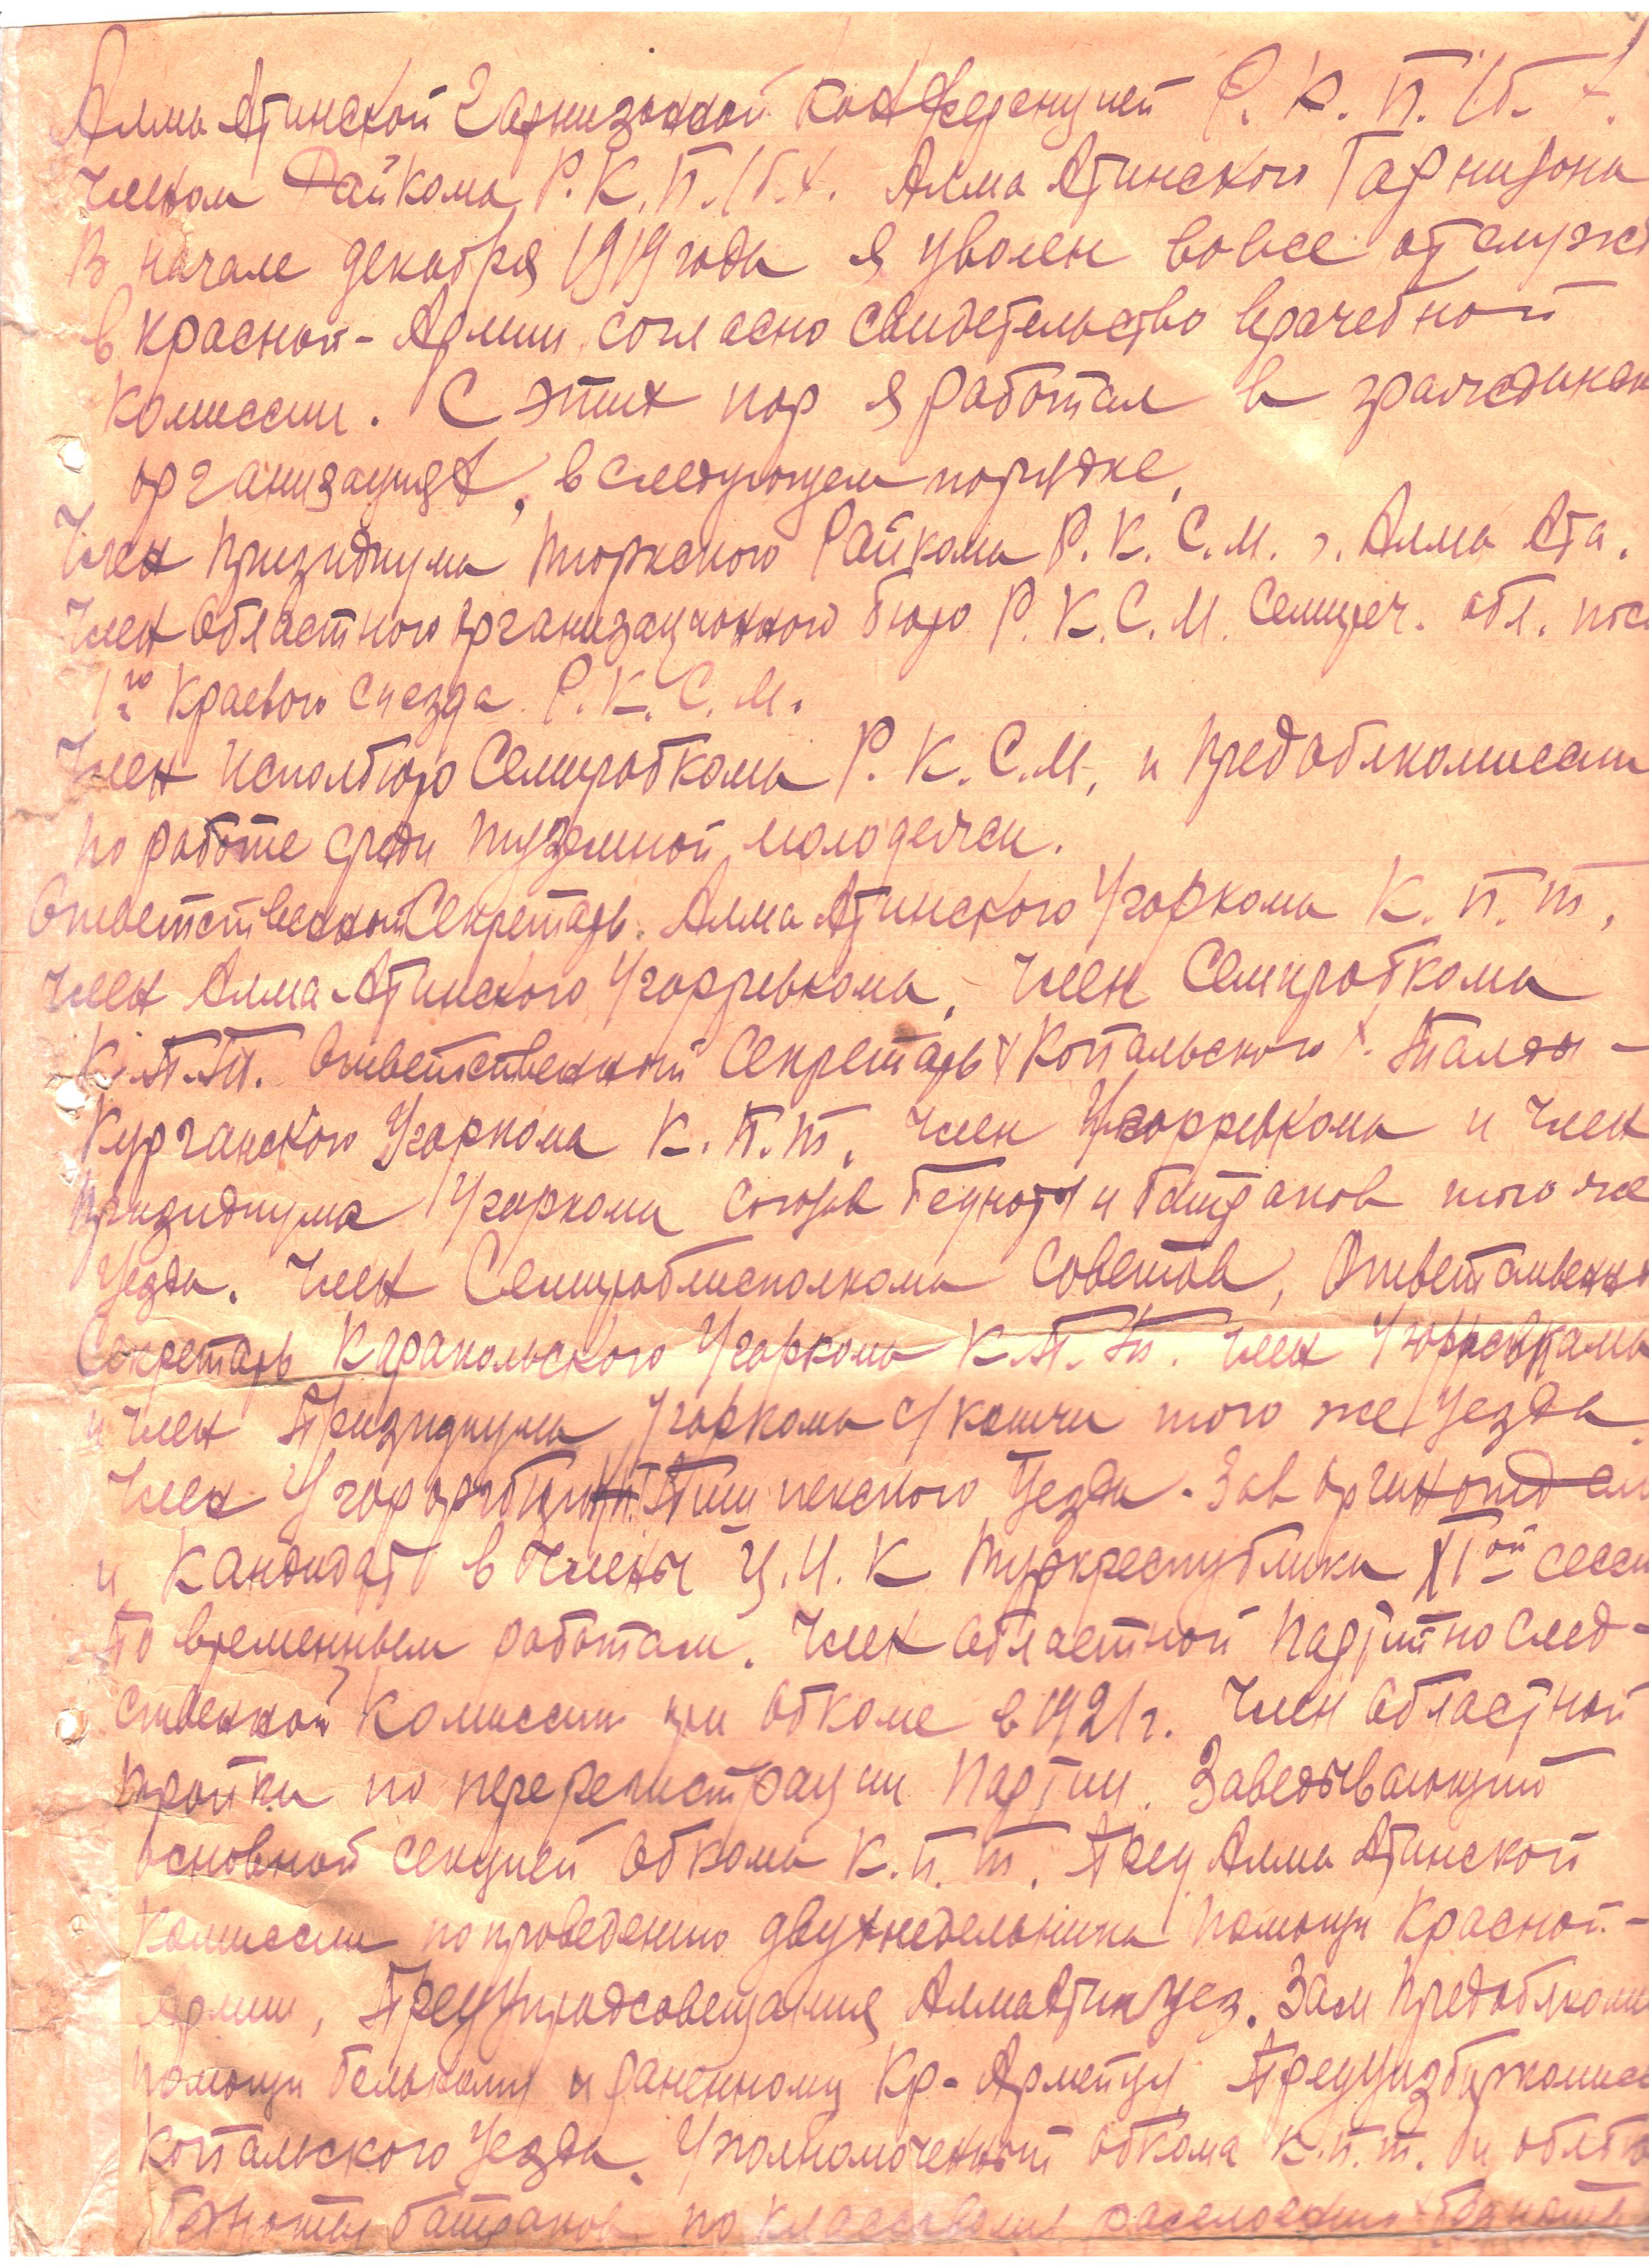 Алма Атинской Гарнизонной конференцией Р. К. П. (б.).
членом Райкома Р. К. П. (б.). Алма Атинского Гарнизона
В начале декабря 1919 года я уволен вовсе от служб
в красной-Армии, согласно свидетельство врачебной
Комиссии. С этих пор я работал в
организациях, в следующем порядке,
Член призидиума Тюркского Райкома Р. К. С. М. г. Алма Ата.
Член областного организационного бюро Р. К. С. М. Семиреч. обл. пос
1го Краевого сиезда Р. К. С. М.
Член исполбюро Семиробкома Р. К. С. М, и предоблкомиссии
по работе среди туземной молодежи.
Ответственный Секретарь Алма Атинского Угоркома К. П. Т,
Член Алма-Атинского Угорревкома, Член Семиробкома
К. П. Т. Ответственный Секретарь (Копальского). Талды-
Курганского Угоркома К. П. Т, Член Угорревкома и Член
призидиума Угоркома Союза бедноты и батраков того же
Уезда. Член Семироблисполкома Советов, Ответственн
Секретарь Каракольского Угоркома К. П. Т. Член
и Член Призидиума Угоркома с/кошчи того же Уезда.
Член Угороргбюро Пишпекского Уезда. Зав
и Кандидат в Члены Ц. И. К Туркреспублики XIой сесси
По временным работам. Член областной Партийно след-
ственной Комиссии при обкоме в 1921 г. Член областной
тройки по перерегистрации Партии. Заведывающий
основной секцией обкома К. П. Т, Пред Алма Атинской
Комиссии по проведению двухнедельника помощи Красной-
Армии, Алмаатин уез. Зам предоблком
помощи больному и раненному Кр-Армейцу,
Копальского Уезда, Уполномоченный обкома К. П. Т. и
батраков по